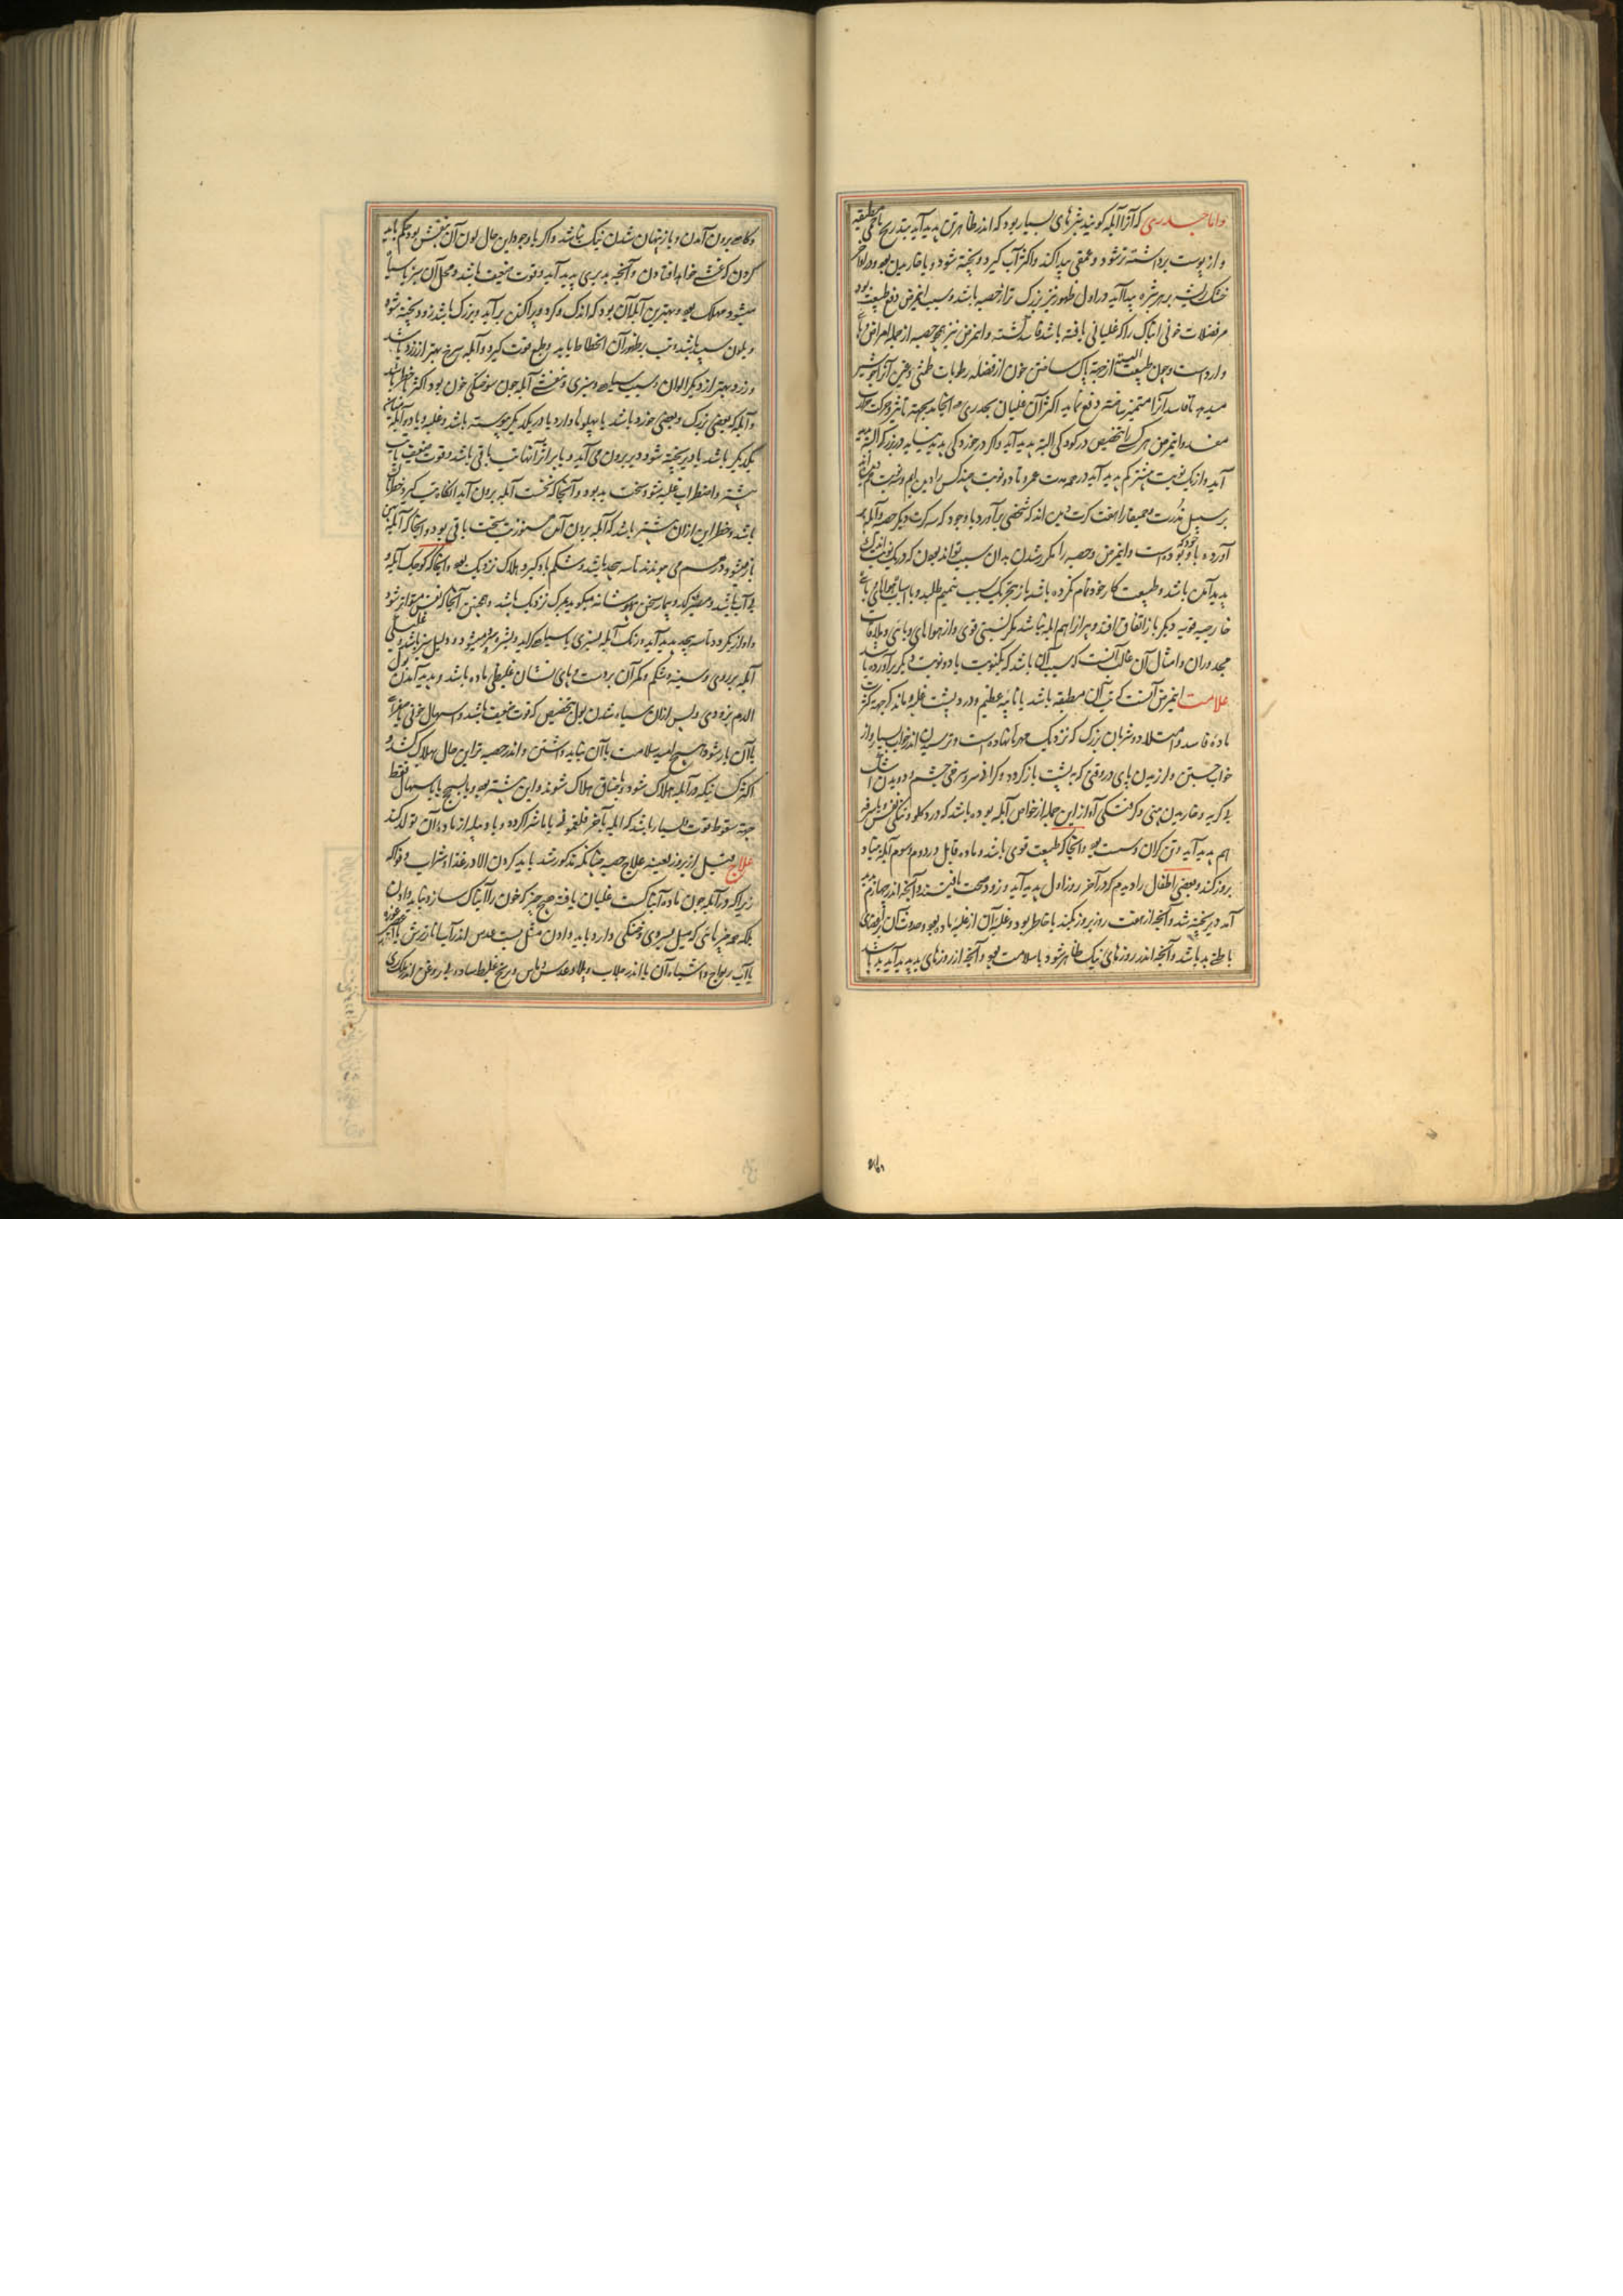 واما جدری که آنرا آبله کویند بثرهای بسیار بود که اندر ظاهر تن پدید آید بتدریج باتمی مطبقه
و از پوست برداشته تر شود و عمقی پیدا کند و اکثر آب کیرد و پخته شود و با خاریدن بود و در اواخر
خشک ریشه بر هر بثره پیدا آید و در اول ظهور نیز بزرک تر از حصبه باشد و سبب اینمرض دفع طبیعت بود
مر فضلات خونی را که غلیانی یافته باشد فاسد کشته و اینمرض نیز همچو حصبه از جمله امراض
و چون طبیعت از جهة پاک ساختن خون از فضله رطوبات طمثی
میدهد تا فاسد آنرا متمیز ساخته دفع نماید اکثر آن غلیان بجدری
و اینمرض هر کسی را بتخصیص در کودکی البته پدید آید و اکر در خوردکی پدید نیاید در بزرکی البته پدید
آید و از یک نوبت بیشتر کم پدید آید در همه مدت عمر و تا دو نوبت چند کس را دیده‌ایم
بر سبیل ندرت که شخصی برآورد با وجود که سه کرت دیکر حصبه و آبله
آورده بوده است و اینمرض و حصبه را مکرر شدن به آن سبب تواند بودن که در یک نوبت اندکی
پدید آمده باشد و طبیعت کار خود تمام نکرده باشد باز بتحریک سبب تتمیم طلبد و با اسباب
خارجیه قویه دیکر باز اتفاق افتد و هر از هم آبله نباشد مکر بسببی قوی و از هواهای وبائی و ملاقات
مجدوران و امثال آن غالب آنست که سبب آن باشد که یکنوبت یا دو نوبت دیکر برآورده باشد
علامت اینمرض آنست که تب آن مطبقه باشد با تاسه عظیم و درد پشت غلبه باندک جهة کثرت
ماده فاسد و امتلاء دو شریان بزرک که نزدیک مهرها نهاده است و ترسیدن اندر خواب بسیار و از
خواب جستن و لرزیدن پای در وقتی که به پشت باز کردد و کرانی سر و سرخی چشم و دویدن اشک
بی کریه و خاریدن بینی و کرفتکی آواز این جمله از خواص آبله بوده باشد که درد کلو و تنکی نفس
هم پدید آید و تن کران و سست بود و آنجا که طبیعت قوی باشد و ماده قابل در دوم و سوم آبله بنیاد
بروز کند و بعضی اطفال را دیدم که در آخر روز اول پدید آید و زود صحت یافتند و آنچه اندر چهارم پدید
آمد دیر پخته شد و آنچه از هفت روز بروز نکند با خاطر بود و غلبه آن از غلبه ماده بود و حدوث آن
باشد و آنچه اندر روزهای نیک ظاهر شود با سلامت بود و آنچه از روزهای بد پدید آید بد باشد
و کاه برون آمدن و باز پنهان شدن نیک نباشد و اکر با وجود این حال لون آن بنفش بود حکم باید
کردن که غشی خواهد افتادن و آنچه بدیری پدید آید و قوت ضعیف باشد و محل آن سبز یا سیاه
میشود مهلک بود و بهترین آبله آن بود که اندک و کرد و پراکنده برآید و بزرک باشد و زود پخته شود
و بلون سپید باشد و تب بظهور آن انحطاط یابد و طبع قوت کیرد و آبله سرخ بهتر از زرد باشد
و زرد بهتر از دیکر الوان و سبب سیاهی و سبزی و بنفشی آبله چون سوختکی خون بود اکثر با خطر باشد
و آبله که بعضی بزرک و بعضی خورد باشد یا پهلوها دارد یا در یکدیکر پیوسته باشد و غلبه
یکدیکر باشد یا دیر پخته شود و دیر برون می آید و یا بر اثر آنها تب باقی باشد و قوت ضعیف باشد
بیشتر و اضطراب غلبه شود سخت بد بود و آنجا که نخست آبله برون آید آنکاه تب کیرد خطرناک
باشد و خطر این از آن بیشتر باشد که آبله برون آید هنوز تب سخت باقی بود و آنجا که آبله
باز میشود و تاسه بحد باشد و شکم باد کیرد و هلاک نزدیک بود و آنجا که کوچک آبله و
بی آب باشد و بیمار سخن بیهوشانه میکوید بمرک نزدیک باشد و همچنین آنجا که نفس متواتر شود
و آواز بکردد و تاسه بحد پدید آید و رنک آبله بسبزی یا سیاهی کراید
آبله بر روی و سینه و شکم و مکر آن بر دست و پای نشان غلیظی ماده باشد و پدید آمدن بول
الدم بزودی و پس از آن سیاه شدن بول بتخصیص که قوت ضعیف باشد و اسهال خونی
با آن یار شود هیچ امید سلامت با آن نباید داشتن و اندر حصبه نیز این حال هلاک کند و
اکثر کسانیکه در آبله هلاک شوند بخناق هلاک شوند و این بیشتر بود و یا بسحج یا باسهال فقط
جهة سقوط قوت و بسیار باشد که آبله بآخر فلغمونی یا ماشرا کردد و یا دبیله از ماده آن تولد کند
علاج پیش از بروز بعینه علاج حصبه چنانکه مذکور شد باید کردن الا در غذا و شراب و فواکه
زیرا که در آبله چون ماده آبناکست غلیان یافته هیچ چیز که خون را آبناک سازد نباید دادن
بلکه همه چیزهائی که میل بسردی و خشکی دارد باید دادن مثل پست عدس اندر آب انار ترش
یا آب ریواج و اشباه آن یا اندر جلاب و پلاو عدس و ماش و برنج غلیظ ساده بی روغن